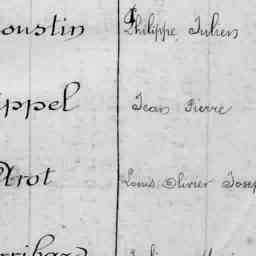 oustin Philippe Julien
ppel Jean Pierre
Arot Louis Olivier Josep